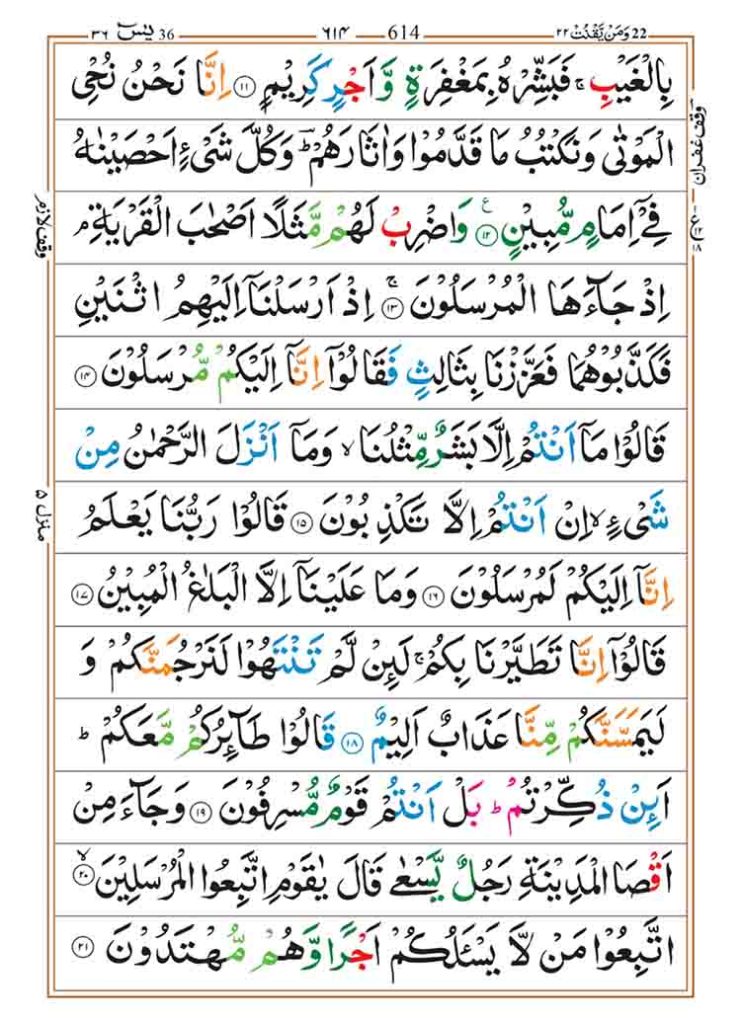 22 وَمَنْ يَّقْنُتْ ٢٢ — 614 — ٦١٤ — 36 يٰسٓ ٣٦
بِالْغَيْبِ ۚ فَبَشِّرْهُ بِمَغْفِرَةٍ وَّاَجْرٍ كَرِيْمٍ ١١ اِنَّا نَحْنُ نُحْيِ
الْمَوْتٰى وَنَكْتُبُ مَا قَدَّمُوْا وَاٰثَارَهُمْ ؕ وَكُلَّ شَيْءٍ اَحْصَيْنٰهُ
وقف غفران
فِيْۤ اِمَامٍ مُّبِيْنٍ ١٢ ع وَاضْرِبْ لَهُمْ مَّثَلًا اَصْحٰبَ الْقَرْيَةِ ۘ
وقف لازم
اِذْ جَآءَهَا الْمُرْسَلُوْنَ ١٣ ۚ اِذْ اَرْسَلْنَاۤ اِلَيْهِمُ اثْنَيْنِ
فَكَذَّبُوْهُمَا فَعَزَّزْنَا بِثَالِثٍ فَقَالُوْۤا اِنَّاۤ اِلَيْكُمْ مُّرْسَلُوْنَ ١٤
قَالُوْا مَاۤ اَنْتُمْ اِلَّا بَشَرٌ مِّثْلُنَا ۙ وَمَاۤ اَنْزَلَ الرَّحْمٰنُ مِنْ
شَيْءٍ ۙ اِنْ اَنْتُمْ اِلَّا تَكْذِبُوْنَ ١٥ قَالُوْا رَبُّنَا يَعْلَمُ
منزل ٥
اِنَّاۤ اِلَيْكُمْ لَمُرْسَلُوْنَ ١٦ وَمَا عَلَيْنَاۤ اِلَّا الْبَلٰغُ الْمُبِيْنُ ١٧
قَالُوْۤا اِنَّا تَطَيَّرْنَا بِكُمْ ۚ لَئِنْ لَّمْ تَنْتَهُوْا لَنَرْجُمَنَّكُمْ وَ
لَيَمَسَّنَّكُمْ مِّنَّا عَذَابٌ اَلِيْمٌ ١٨ قَالُوْا طَآئِرُكُمْ مَّعَكُمْ ؕ
اَئِنْ ذُكِّرْتُمْ ؕ بَلْ اَنْتُمْ قَوْمٌ مُّسْرِفُوْنَ ١٩ وَجَآءَ مِنْ
اَقْصَا الْمَدِيْنَةِ رَجُلٌ يَّسْعٰى قَالَ يٰقَوْمِ اتَّبِعُوا الْمُرْسَلِيْنَ ٢٠ ۙ
اتَّبِعُوْا مَنْ لَّا يَسْئَلُكُمْ اَجْرًا وَّهُمْ مُّهْتَدُوْنَ ٢١